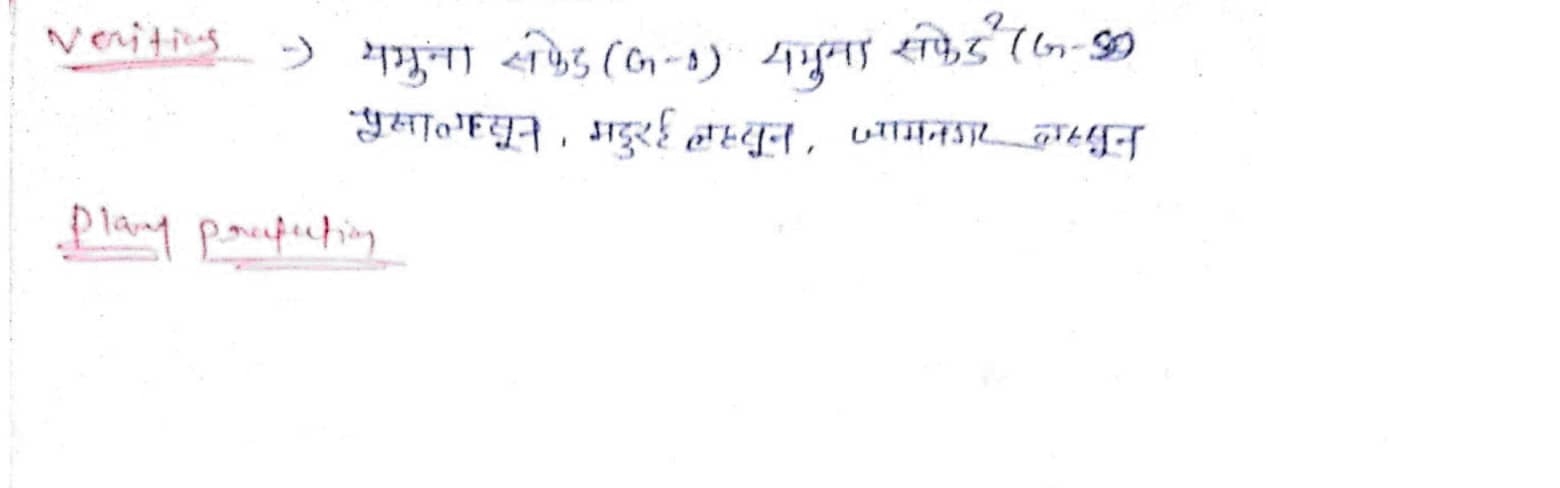 Veritins -> यमुना सफेड (G-1) यमुना सफेड 2 (G-50)
पुसा लहसून, मदुरई लहसून, जामनगर लहसून
Plant protection